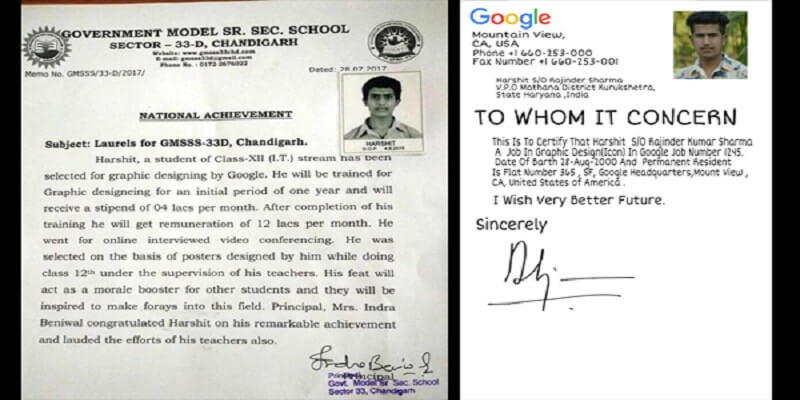 GOVERNMENT MODEL SR. SEC. SCHOOL
SECTOR - 33-D, CHANDIGARH
Website: www.gmsss33chd.com
Phone No. : 0172-2676022
Memo No. GMSSS/33-D/2017/
Dated: 28.07.2017
NATIONAL ACHIEVEMENT
HARSHIT
Subject: Laurels for GMSSS-33D, Chandigarh.
Harshit, a student of Class-XII (I.T.) stream has been
selected for graphic designing by Google. He will be trained for
Graphic designeing for an initial period of one year and will
receive a stipend of 04 lacs per month. After completion of his
training he will get remuneration of 12 lacs per month. He
went for online interviewed video conferencing. He was
selected on the basis of posters designed by him while doing
class 12th under the supervision of his teachers. His feat will
act as a morale booster for other students and they will be
inspired to make forays into this field. Principal, Mrs. Indra
Beniwal congratulated Harshit on his remarkable achievement
and lauded the efforts of his teachers also.
Principal
Govt. Model Sr. Sec. School
Sector 33, Chandigarh
Google
Mountain View,
CA, USA
Phone +1 660-253-000
Fax Number +1 660-253-001
Harshit S/O Rajinder Sharma
V.P.O Mathana District Kurukshetra,
State Haryana ,India
TO WHOM IT CONCERN
This Is To Certify That Harshit S/O Rajinder Kumar Sharma
A Job In Graphic Design(Icon) In Google Job Number 1245.
Date Of Barth 28-Aug-2000 And Permanent Resident
Is Flat Number 365 , SF, Google Headquarters,Mount View ,
CA, United States of America .
I Wish Very Better Future.
Sincerely